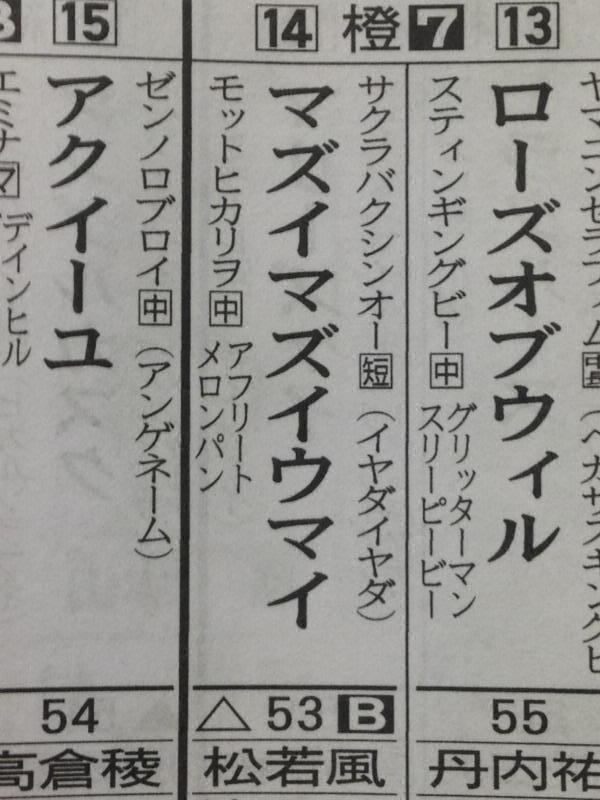 13
ヤマニンセラフィム
ローズオブウィル
スティンギングビー 中
グリッターマン
スリーピービー
55
丹内祐
橙 7
14
サクラバクシンオー 短 (イヤダイヤダ)
マズイマズイウマイ
モットヒカリヲ 中
アフリート
メロンパン
△ 53 B
松若風
15
ゼンノロブロイ 中 (アンゲネーム)
アクイーユ
デインヒル
54
高倉稜